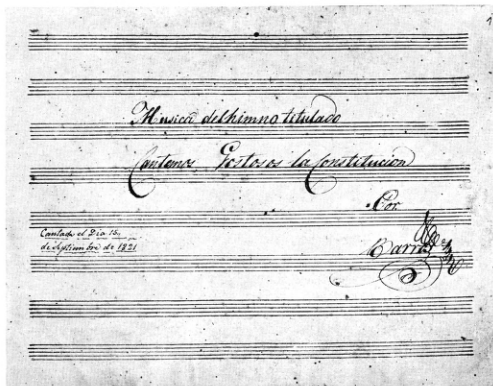 Musica del himno titulado
Cantemos Gostosos la Constitucion
Por
Barros
Cantado el Dia 15,
de Septiembre de 1821